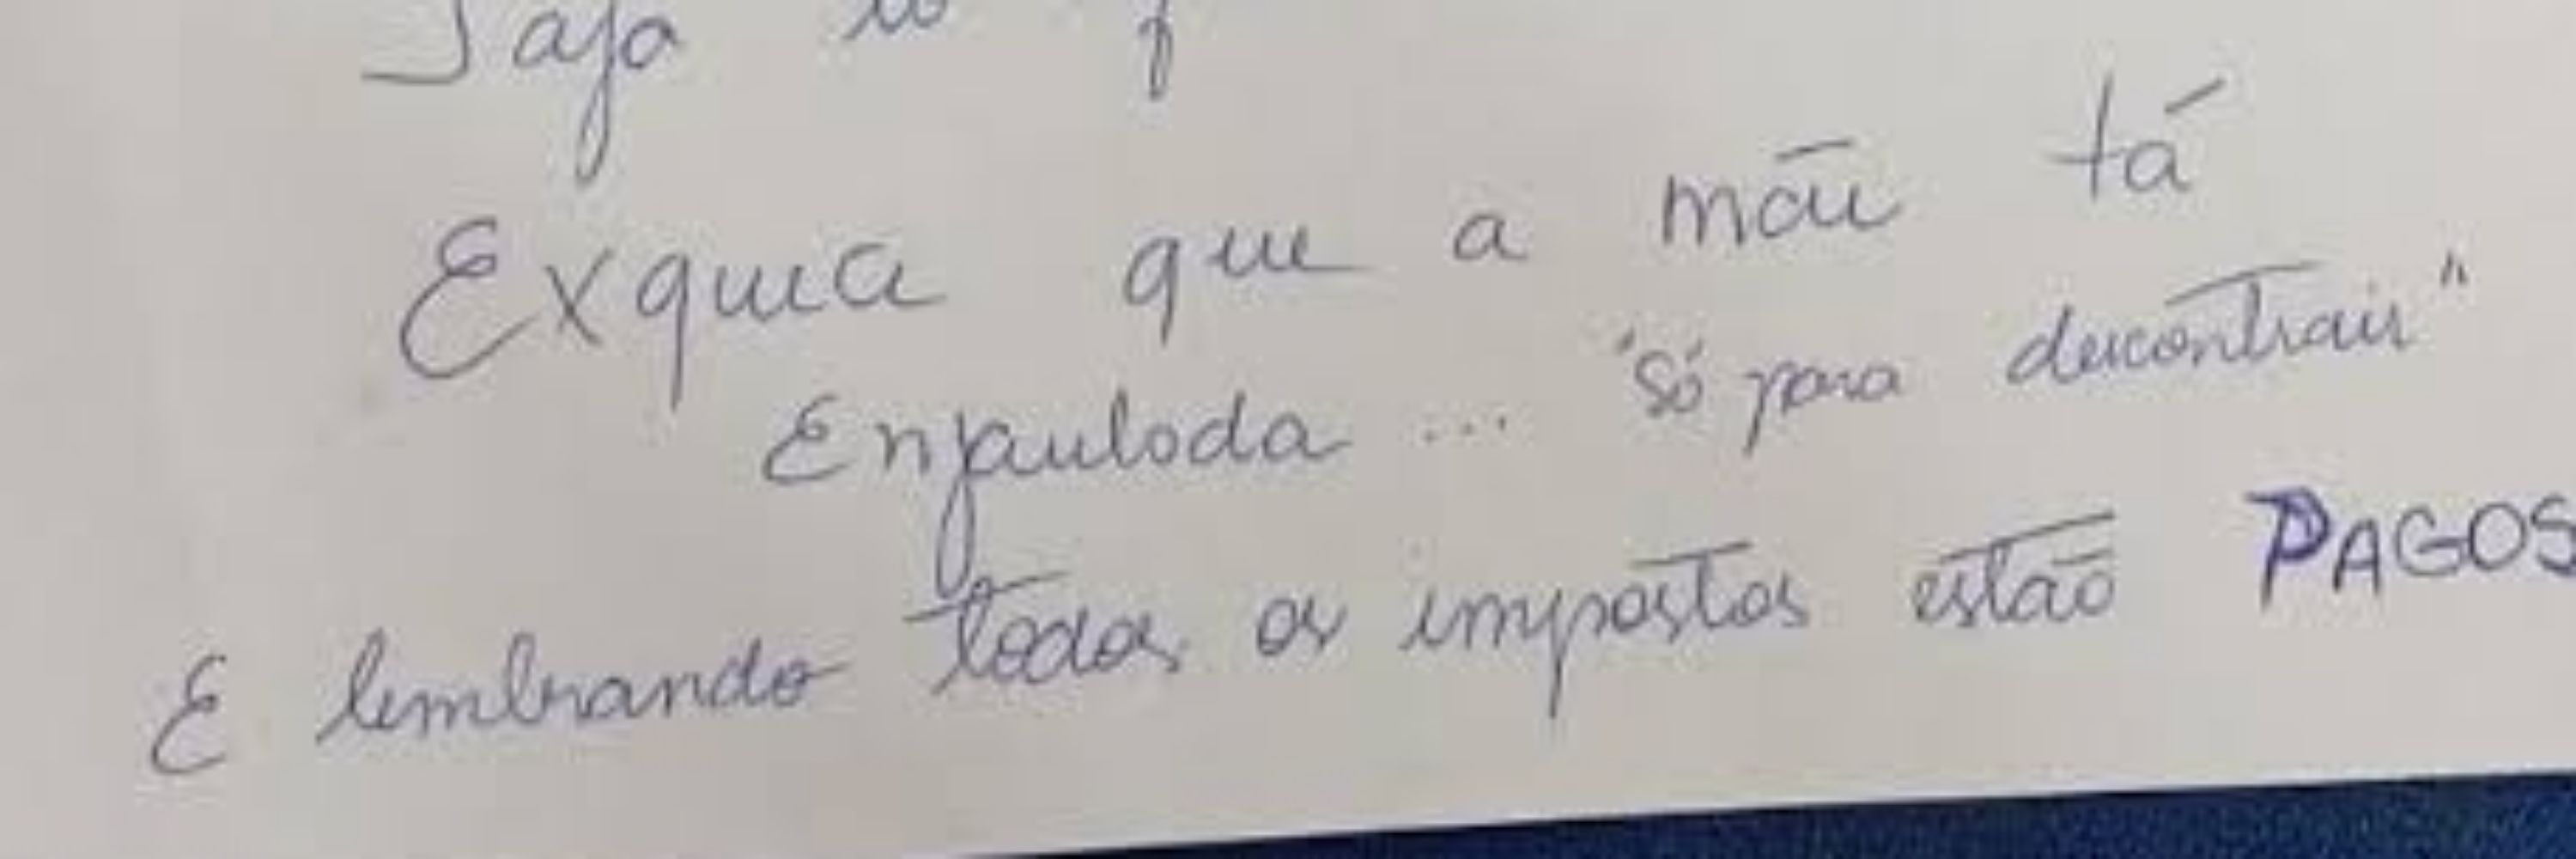 Exquia que a mãe tá
Enjaulada ... "só para descontrair"
E lembrando todos os impostos estão PAGOS